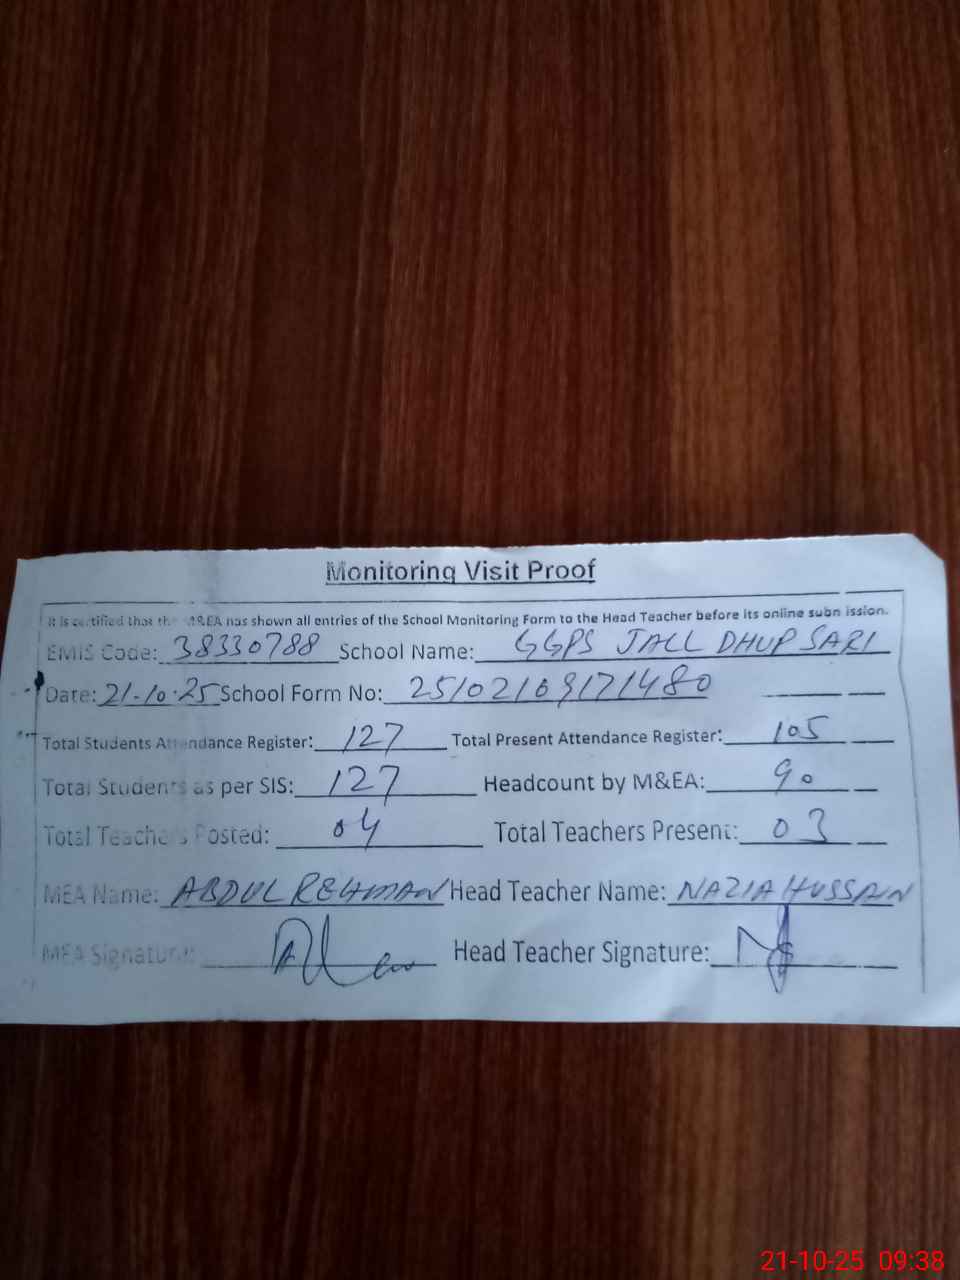 Monitoring Visit Proof
It is certified that the M&EA has shown all entries of the School Monitoring Form to the Head Teacher before its online submission.
EMIS Code: 38330788 School Name: GGPS JALL DHUP SARI
Date: 21-10-25 School Form No: 25102109171480
Total Students Attendance Register: 127 Total Present Attendance Register: 105
Total Students as per SIS: 127 Headcount by M&EA: 90
Total Teachers Posted: 04 Total Teachers Present: 03
MEA Name: ABDUL REHMAN Head Teacher Name: NAZIA HUSSAIN
MEA Signature: Head Teacher Signature:
21-10-25 09:38